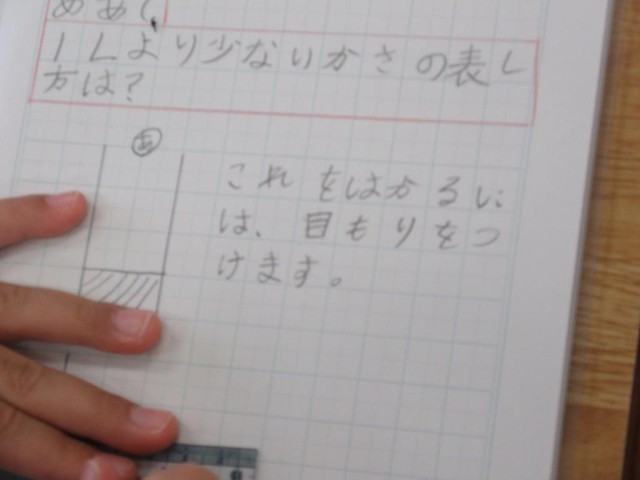 めあて
1Lより少ないかさの表し
方は?
あ
これをはかるに
は、目もりをつ
けます。